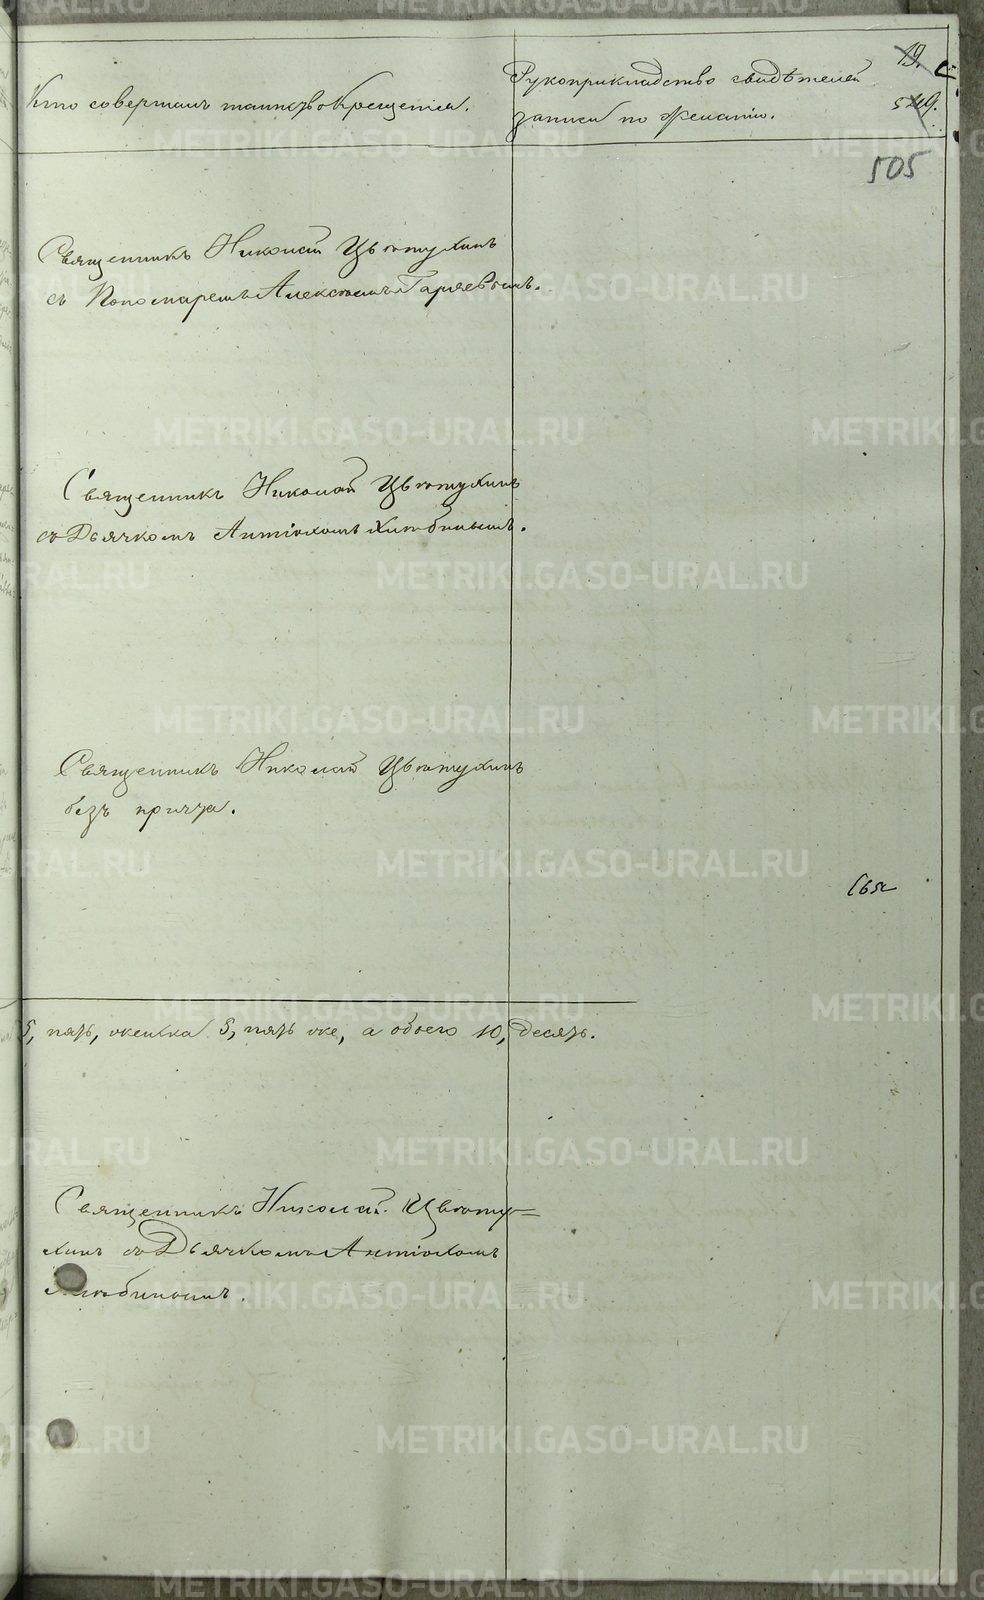 Кто совершалъ таинство Крещенія.
Рукоприкладство свидѣтелей
записи по желанію.
19.
505
Священникъ Николай Цвѣтухинъ
съ Пономаремъ Алексѣемъ Гаряевымъ.
Священникъ Николай Цвѣтухинъ
съ Дьячкомъ Антіохомъ Хлѣбинымъ.
Священникъ Николай Цвѣтухинъ
безъ причта.
5, пять, женска 5, пять же, а обоего 10, десять.
Священникъ Николай Цвѣту=
хинъ съ Дьячкомъ Антіохомъ
Хлѣбинымъ.
METRIKI.GASO-URAL.RU